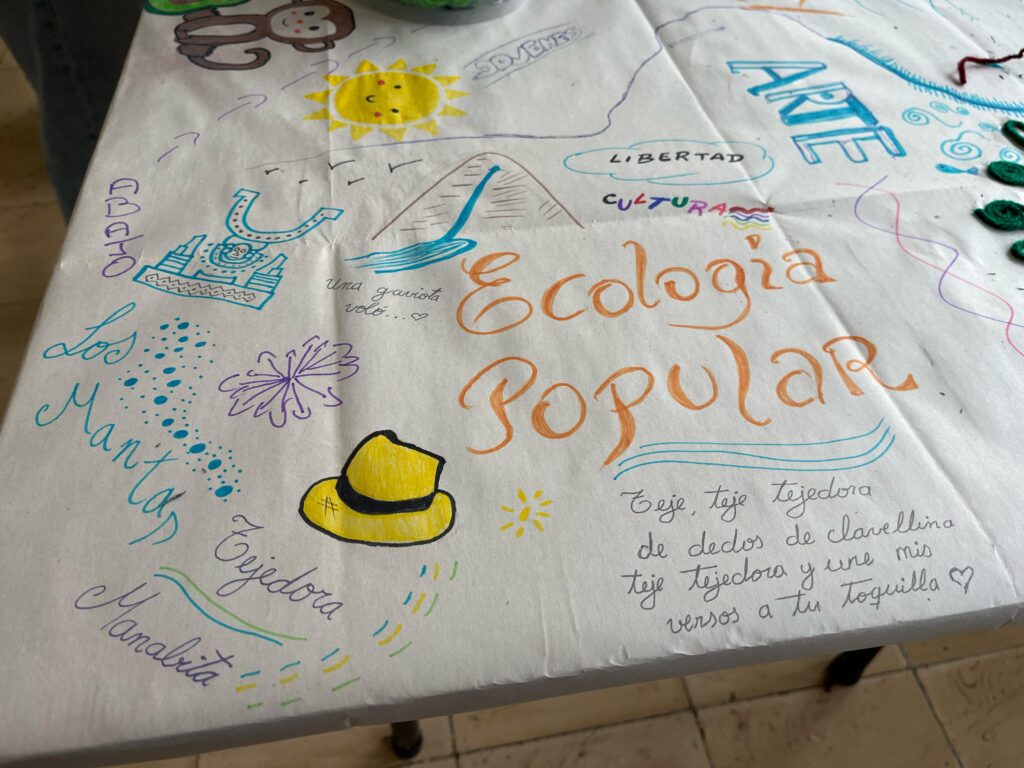 JÓVENES
ARTE
LIBERTAD
CULTURA
Una gaviota
voló...
Ecología
Popular
Los
Mantas
Tejedora
Manabita
Teje, teje tejedora
de dedos de clavellina
teje tejedora y une mis
versos a tu toquilla